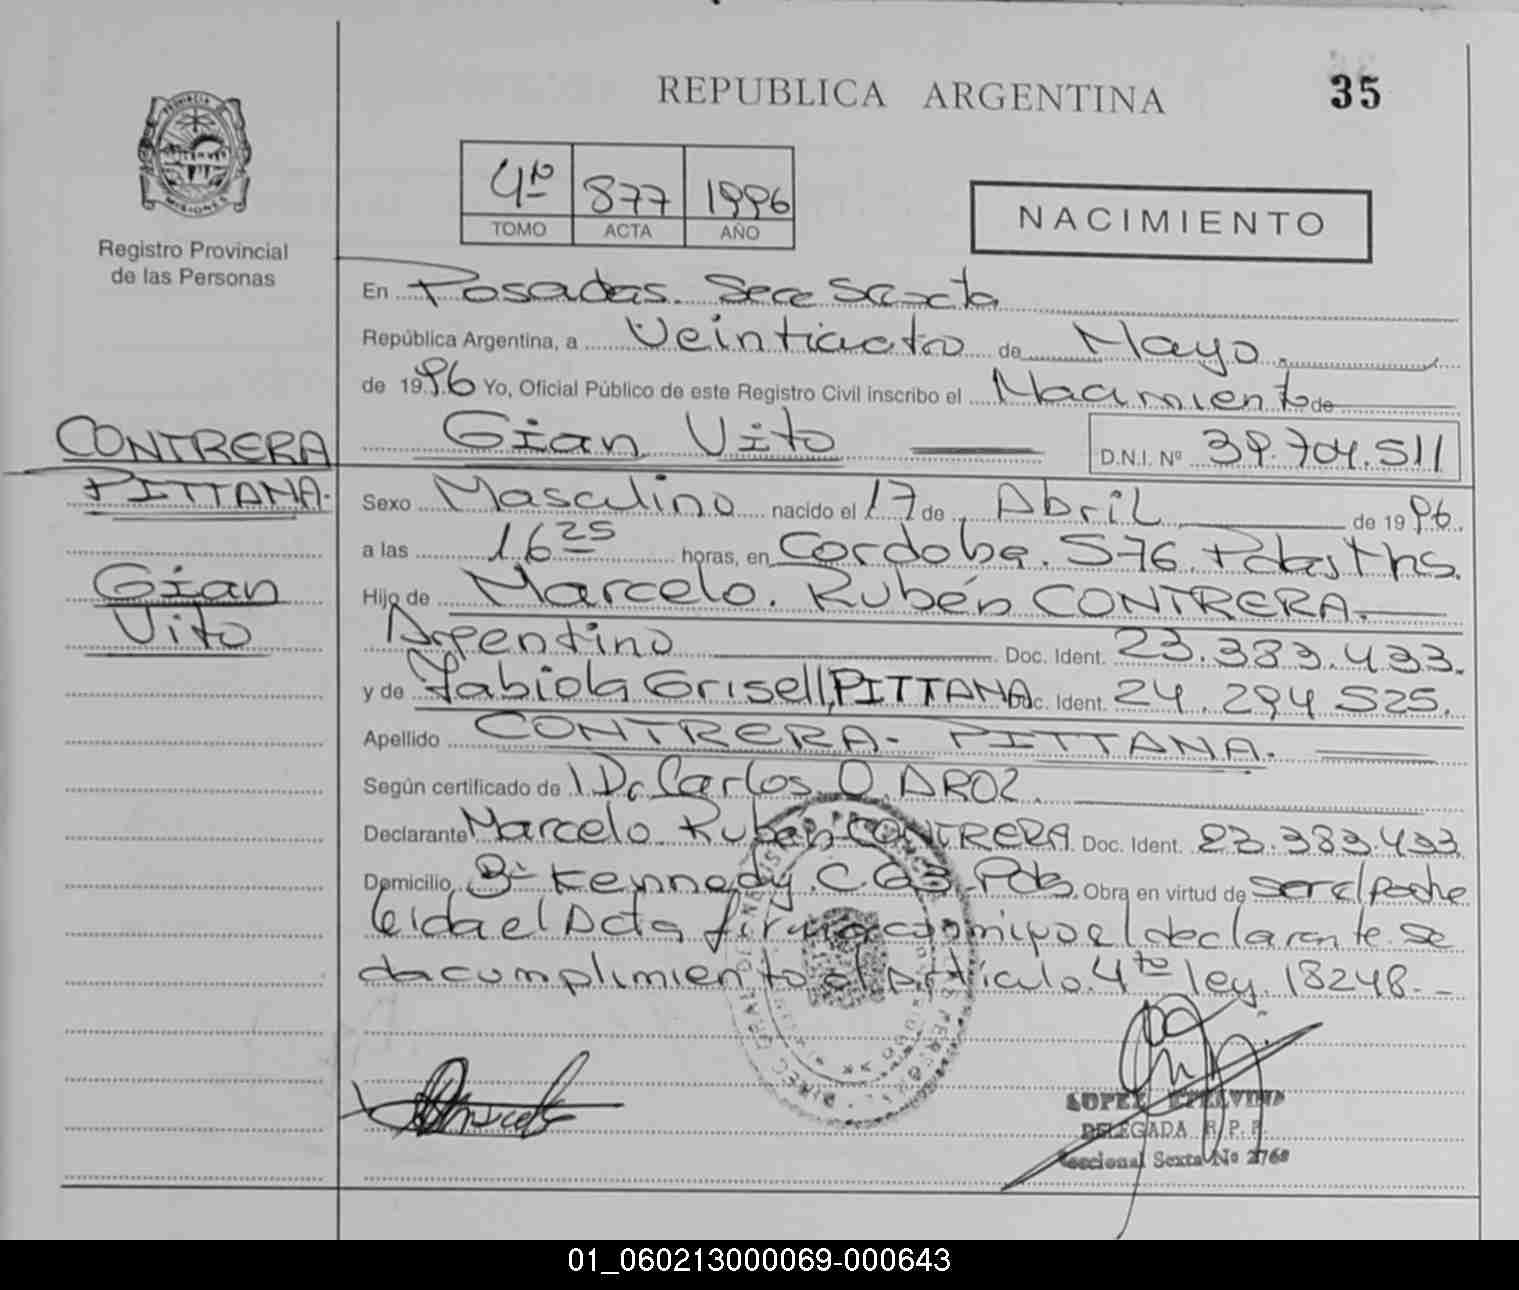 REPUBLICA ARGENTINA
35
PROVINCIA
MISIONES
Registro Provincial
de las Personas
4to 877 1996
TOMO ACTA AÑO
NACIMIENTO
En Posadas. Secc Sexta
República Argentina, a Veintiocho de Mayo.
de 1996 Yo, Oficial Público de este Registro Civil inscribo el Nacimiento de
CONTRERA
PITTANA.
Gian
Vito
Gian Vito D.N.I. Nº 39.704.511
Sexo Masculino nacido el 17 de Abril de 1996.
a las 16 25 horas, en Cordoba. 576. Pdas Ms.
Hijo de Marcelo. Rubén CONTRERA.
Argentino Doc. Ident. 23.383.433.
y de Fabiola Grisell PITTANA Doc. Ident. 24.294.525.
Apellido CONTRERA- PITTANA.
Según certificado de Dr Carlos O. AROZ.
Declarante Marcelo Rubén CONTRERA. Doc. Ident. 23.383.433
Domicilio Bº Kennedy. C. 63. Pdas. Obra en virtud de ser el padre
leida el Acta firma conmigo el declarante. se
da cumplimiento al Articulo. 4to ley. 18248.-
LOPEZ ETELVINA
DELEGADA R.P.P.
Seccional Sexta Nº 2768
01_060213000069-000643